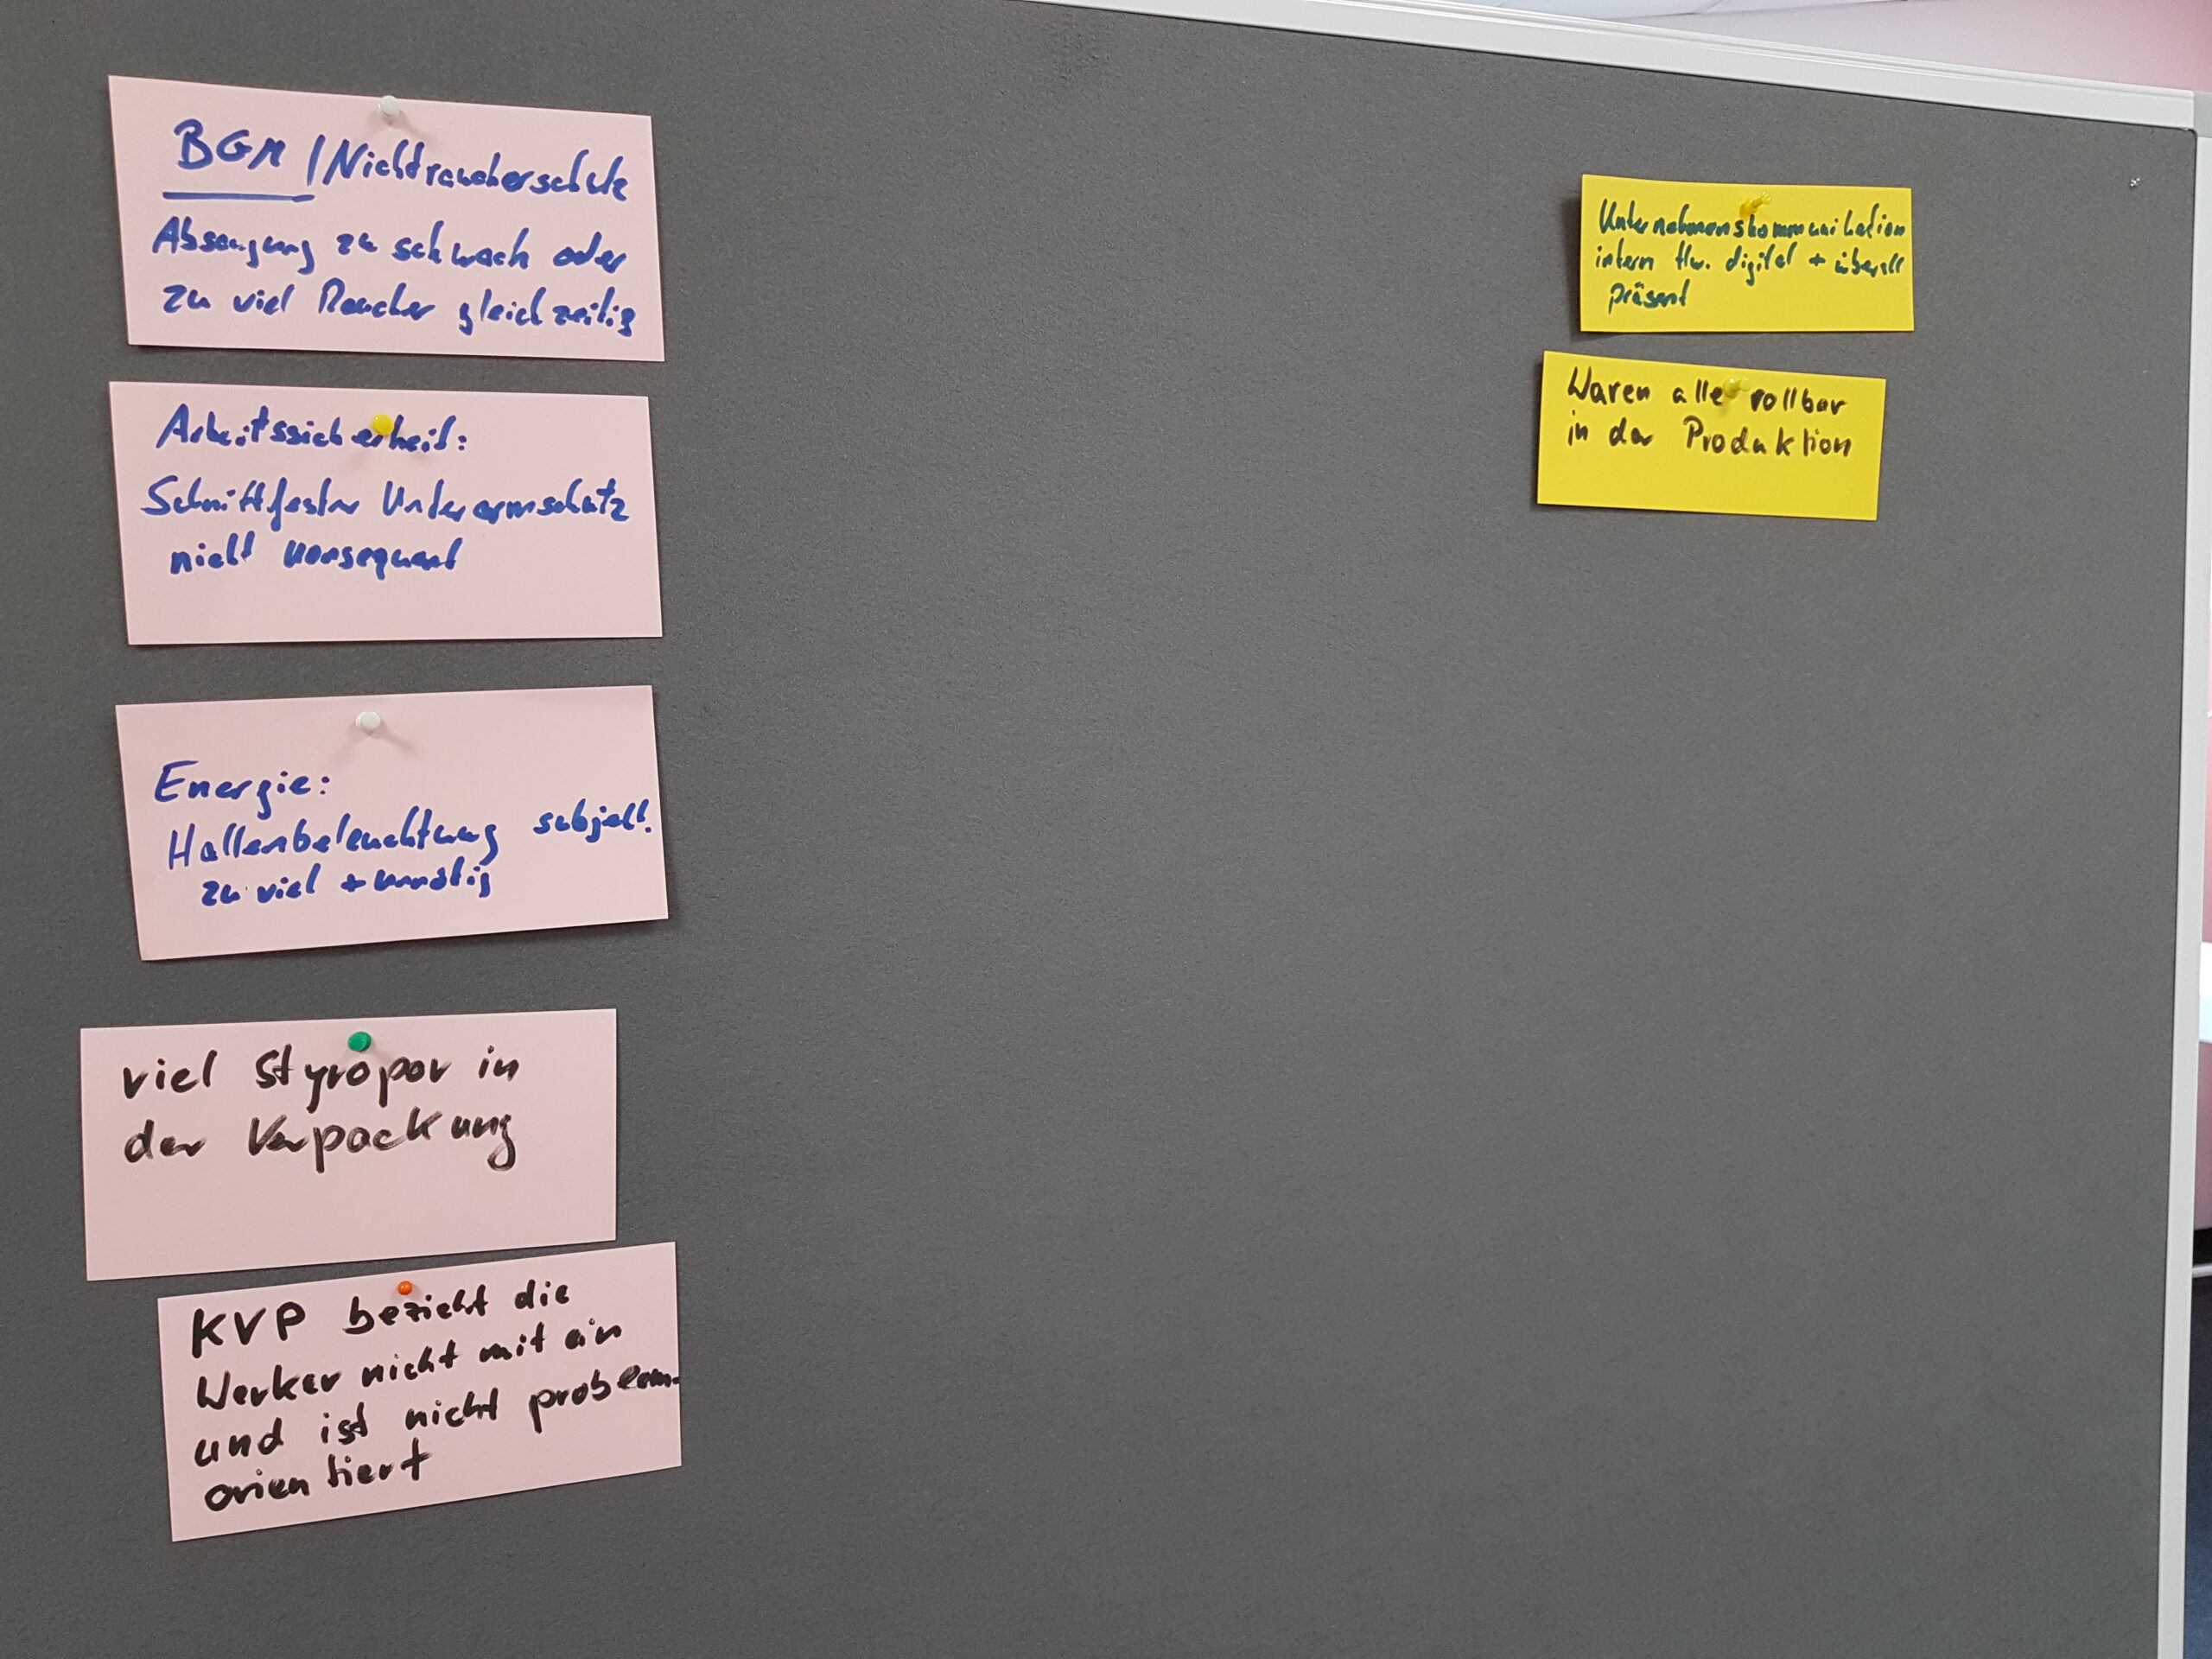 BGM / Nichtraucherschutz
Absaugung zu schwach oder
zu viel Raucher gleichzeitig
Arbeitssicherheit:
Schnittfester Unterarmschutz
nicht konsequent
Energie:
Hallenbeleuchtung subjekt.
zu viel + unnötig
viel Styropor in
der Verpackung
KVP bezieht die
Werker nicht mit ein
und ist nicht problem-
orientiert
Unternehmenskommunikation
intern tlw. digital + überall
präsent
Waren alle rollbar
in der Produktion